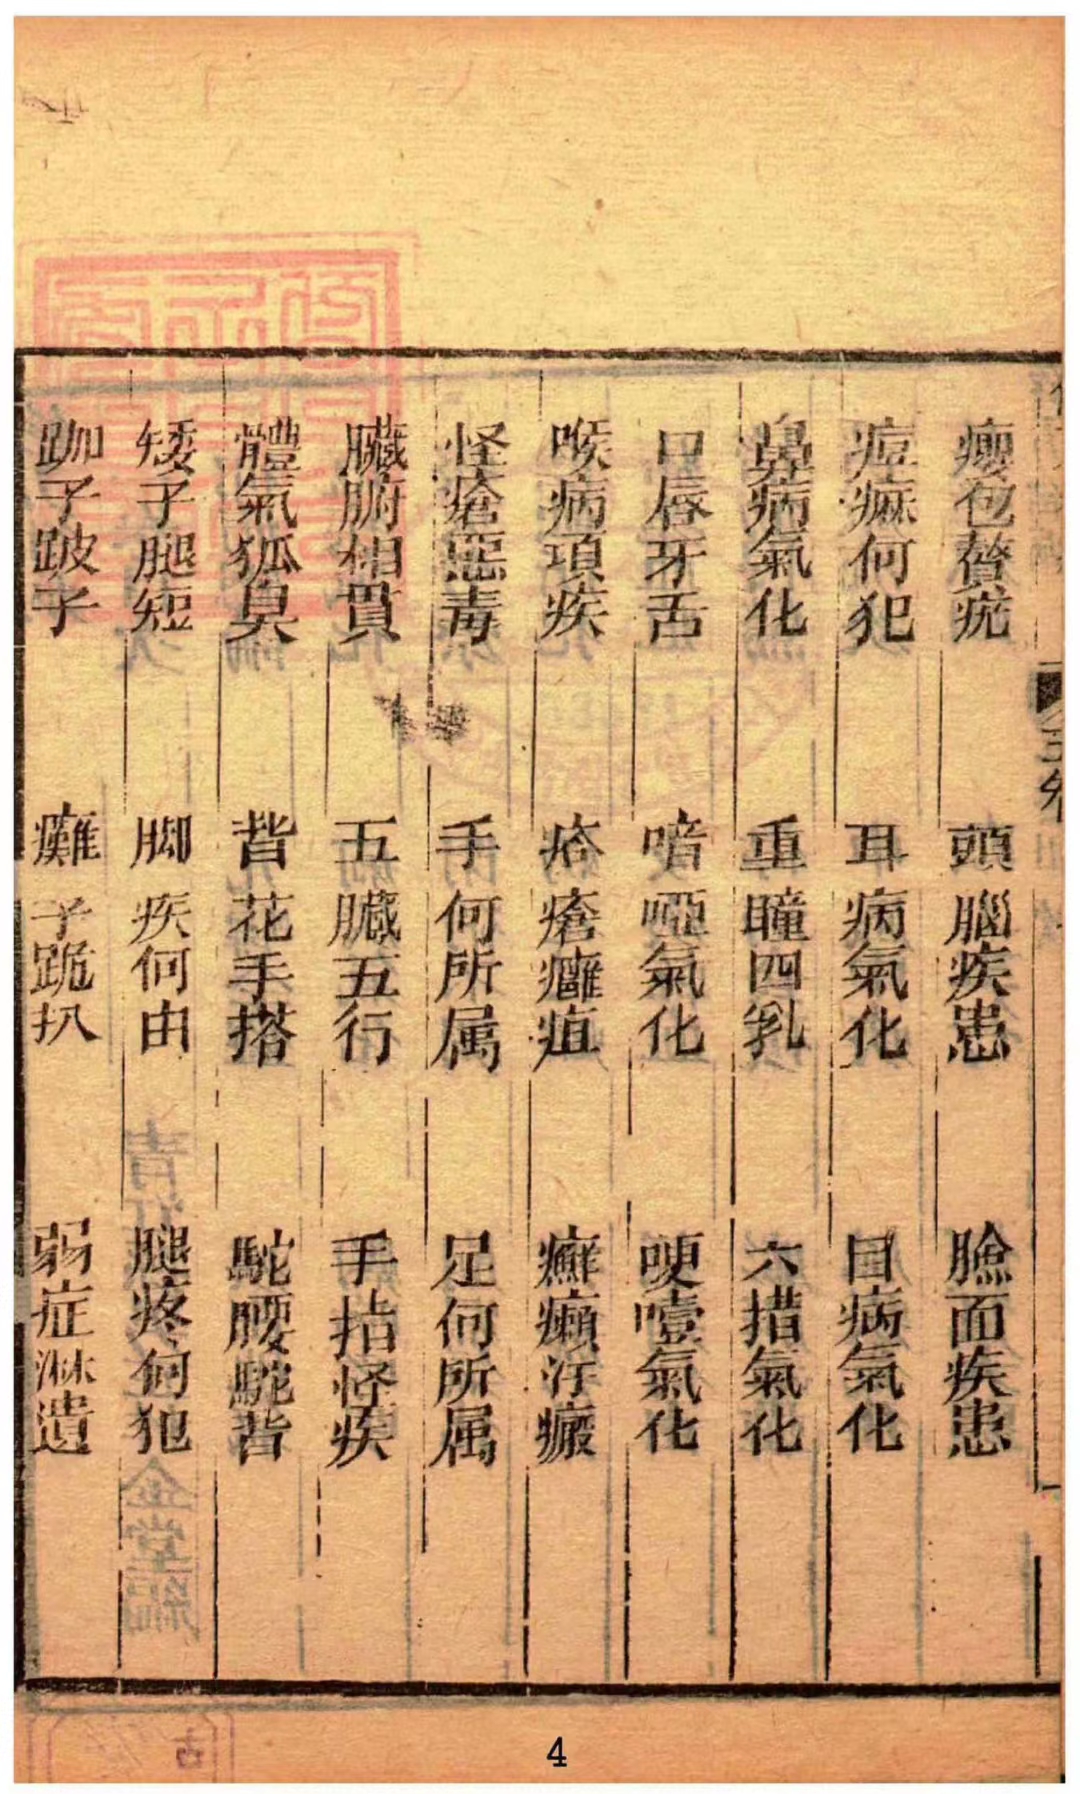 癭包贅疣　頭腦疾患　臉面疾患
痘痲何犯　耳病氣化　目病氣化
鼻病氣化　重瞳四乳　六措氣化
口唇牙舌　喑啞氣化　哽噎氣化
喉病項疾　疮瘡癰疽　癬癩汗癜
怪瘡惡毒　手何所属　足何所属
臟腑相貫　五臟五行　手拈怪疾
體氣狐臭　背花手搭　駝腰駝背
矮子腿短　脚疾何由　腿疼何犯
跏子跛子　癱子跪扒　弱症淋遺
4